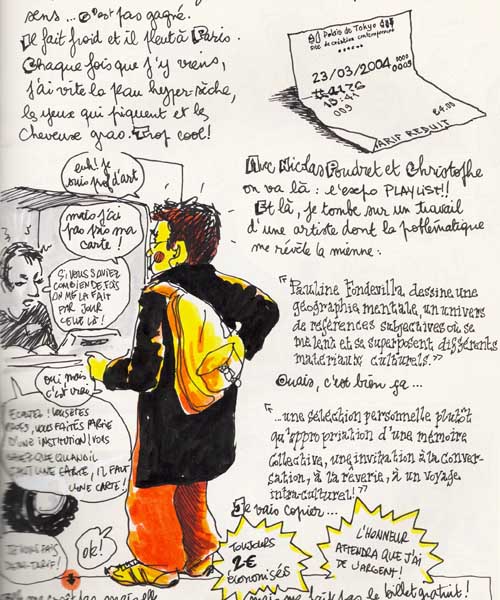 sens ... c'est pas gagné.
Il fait froid et il pleut à Paris.
Chaque fois que j'y viens,
j'ai vite la peau hyper-sèche,
les yeux qui piquent et les
cheveux gras. Trop cool!
Palais de Tokyo
site de création contemporaine
23/03/2004
0009
009
€4.00
TARIF REDUIT
Avec Nicolas Poudret et Christophe
on va là : l'expo PLAYLIST!!
Et là, je tombe sur un travail
d'une artiste dont la problématique
me révèle la mienne:
"Pauline Fondevilla, dessine une
géographie mentale, un univers
de références subjectives où se
mêlent et se superposent différents
matériaux culturels."
Ouais, c'est bien ça ...
"...une sélection personnelle plutôt
qu'appropriation d'une mémoire
collective, une invitation à la conver-
sation, à la rêverie, à un voyage
intra-culturel!"
Je vais copier...
euh! je
suis prof d'art
mais j'ai
pas pris ma
carte!
Si vous saviez
combien de fois
on me la fait
par jour
celle là!
oui mais
c'est vrai
ECOUTEZ! VOUS ETES
VOUS FAITES PARTIE
D'UNE INSTITUTION! VOUS
QUE QUAND IL
FAUT UNE CARTE, IL FAUT
UNE CARTE!
JE VOUS FAIS
DEMI-TARIF!
ok!
TOUJOURS
2€
économisés
L'HONNEUR
ATTENDRA QUE J'AI
DE L'ARGENT!
mais me fait pas le billet gratuit!